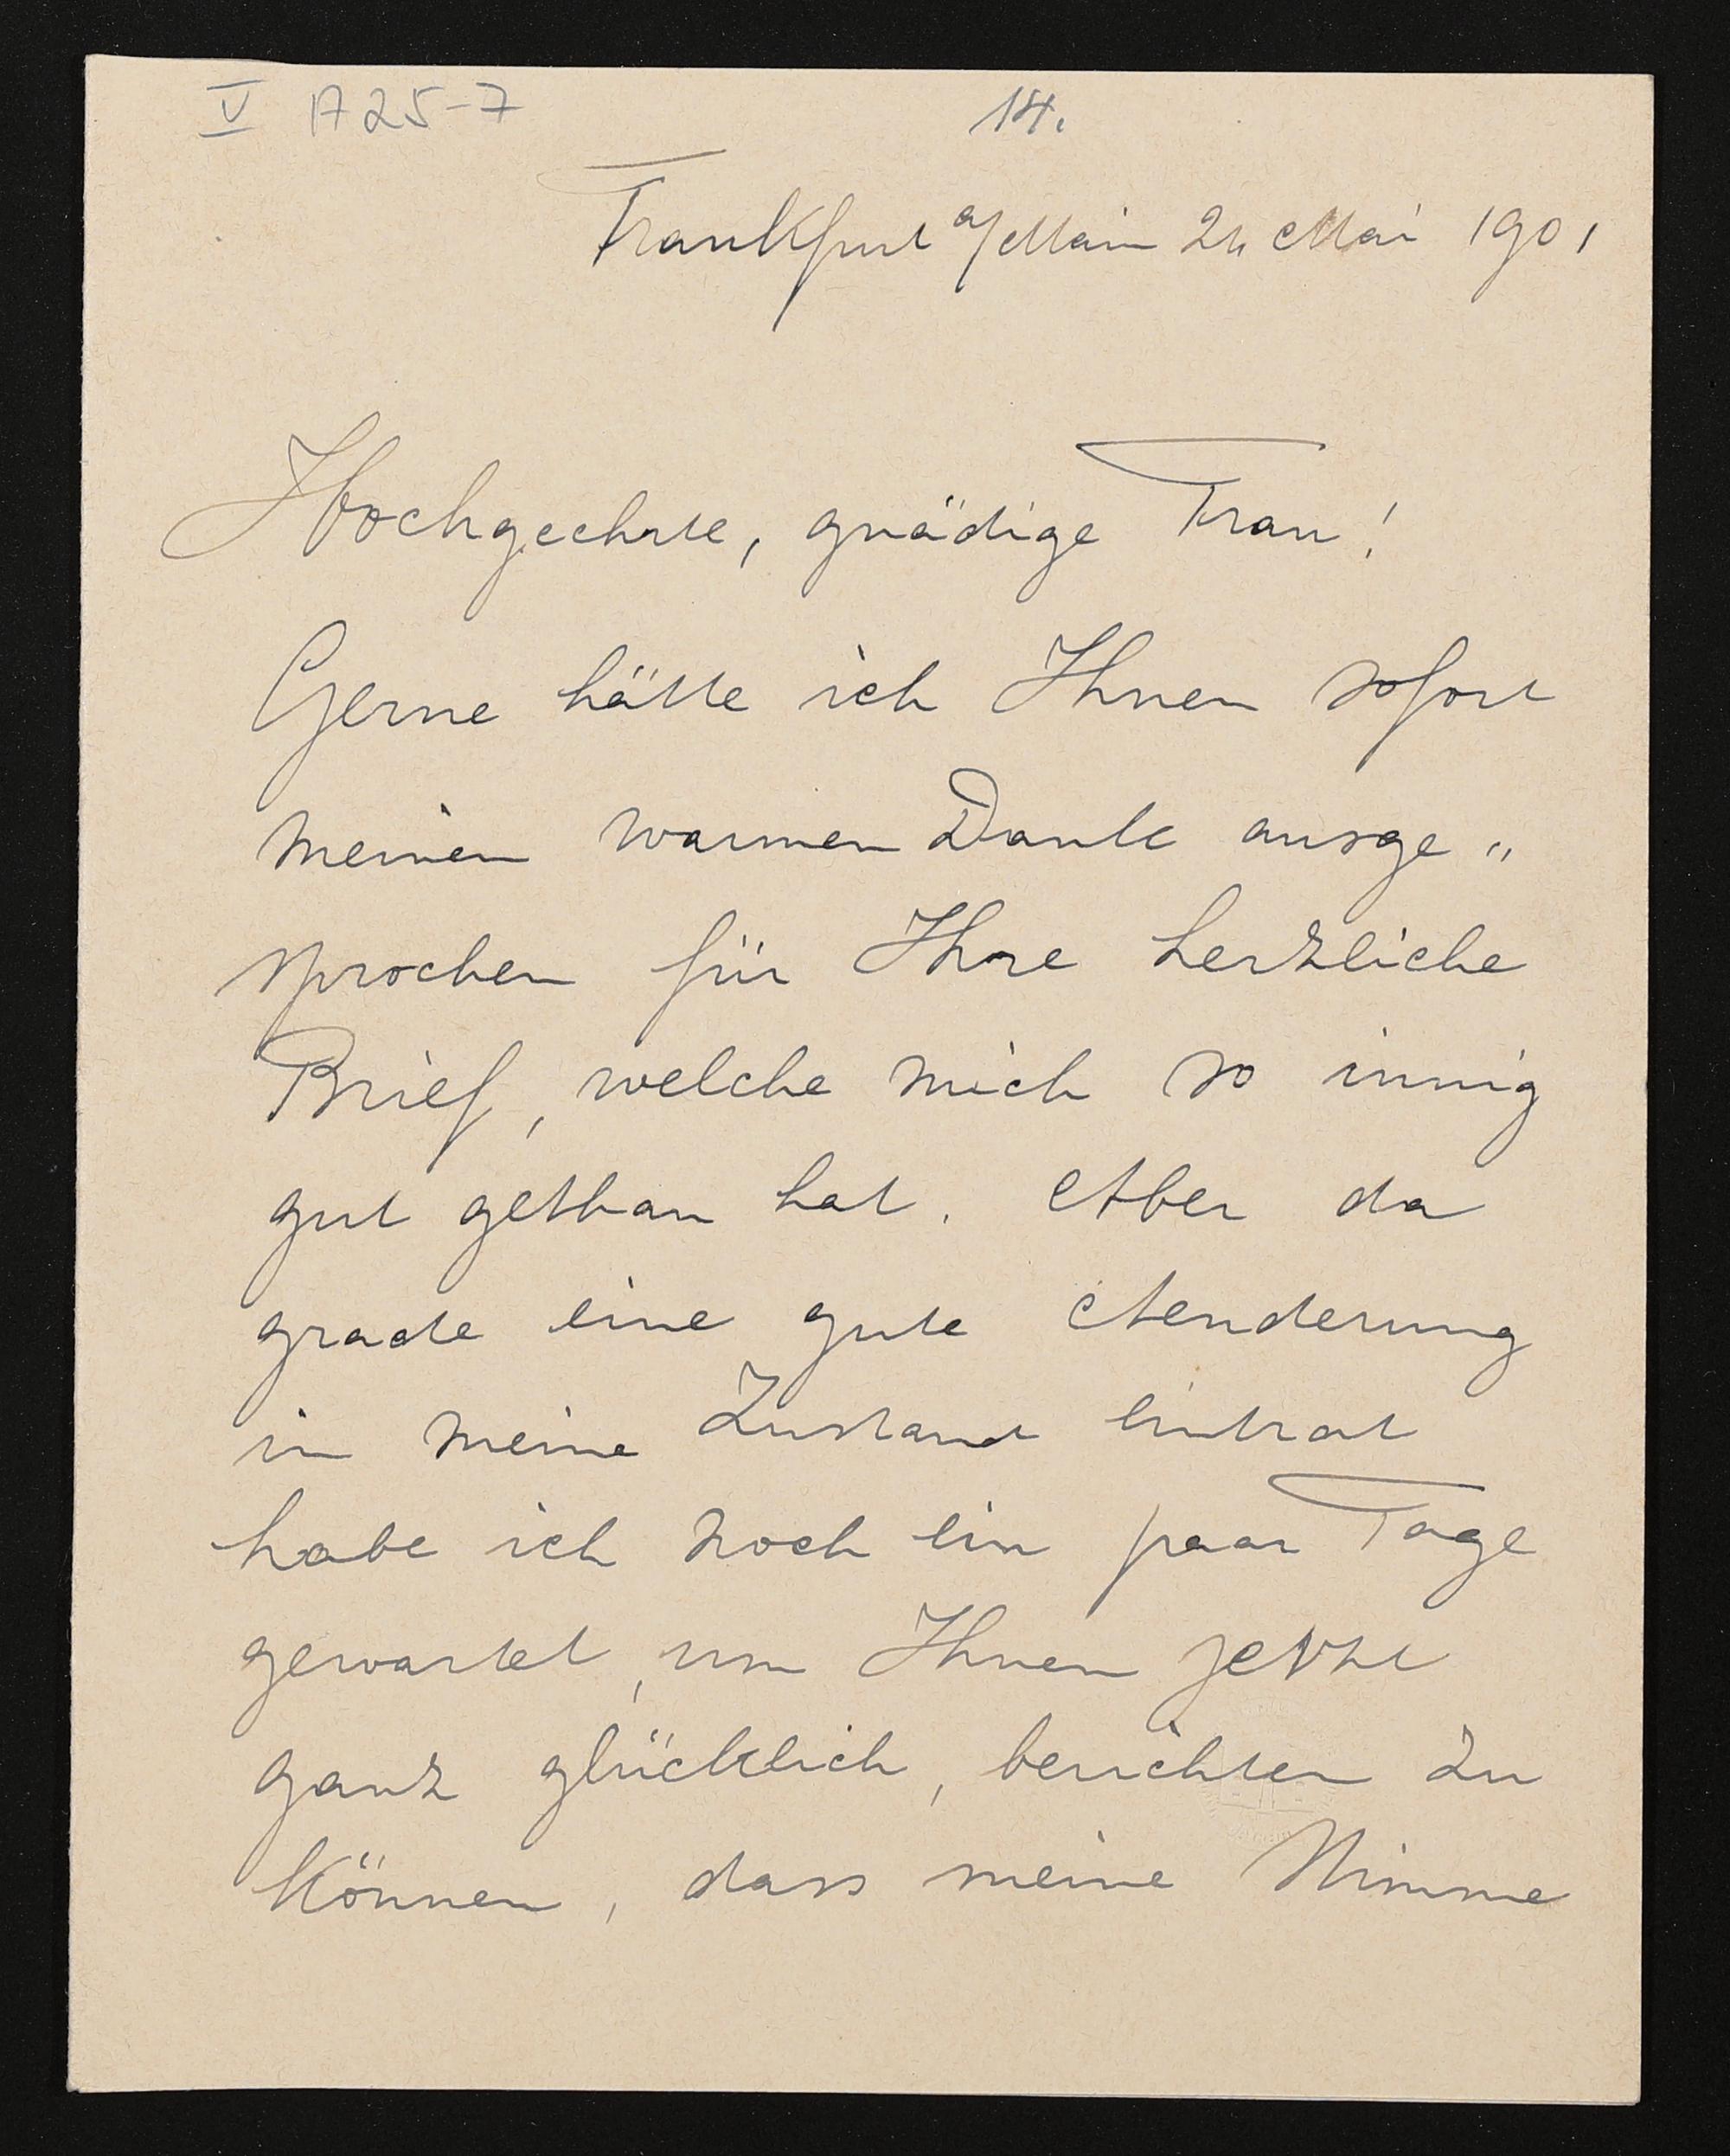 V A 25-7
14.
Frankfurt a/Main 24 Mai 1901
Hochgeehrte, gnädige Frau!
Gerne hätte ich Ihnen sofort
meinen warmen Dank ausge"
sprochen für Ihre herzliche
Brief, welche mich so innig
gut gethan hat. Aber da
grade eine gute Aenderung
in meine Zustand eintrat
habe ich noch ein paar Tage
gewartet, um Ihnen jetzt
ganz glücklich, berichten zu
können, dass meine Stimme